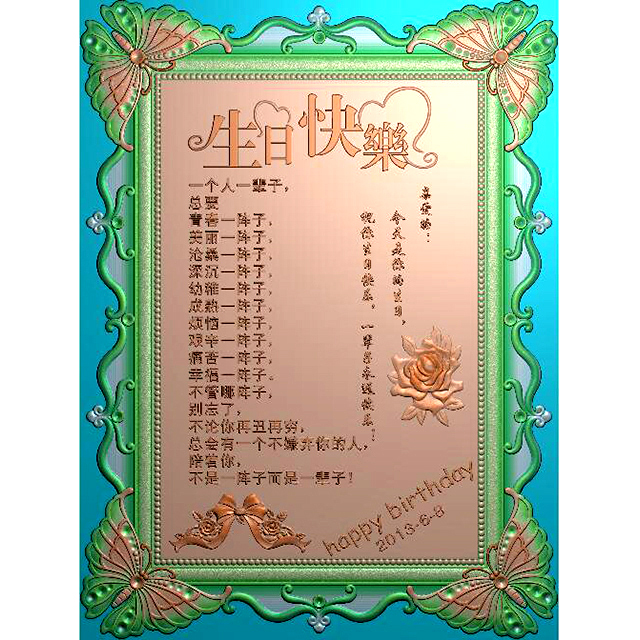 生日快樂
一个人一辈子，
总要
青春一阵子，
美丽一阵子，
沧桑一阵子，
深沉一阵子，
幼稚一阵子，
成熟一阵子，
烦恼一阵子，
艰辛一阵子，
痛苦一阵子，
幸福一阵子。
不管哪阵子，
别忘了，
不论你再丑再穷，
总会有一个不嫌弃你的人，
陪着你，
不是一阵子而是一辈子！
亲爱的：
今天是你的生日，
祝你生日快乐，一辈子永远快乐！
happy birthday
2013-6-8